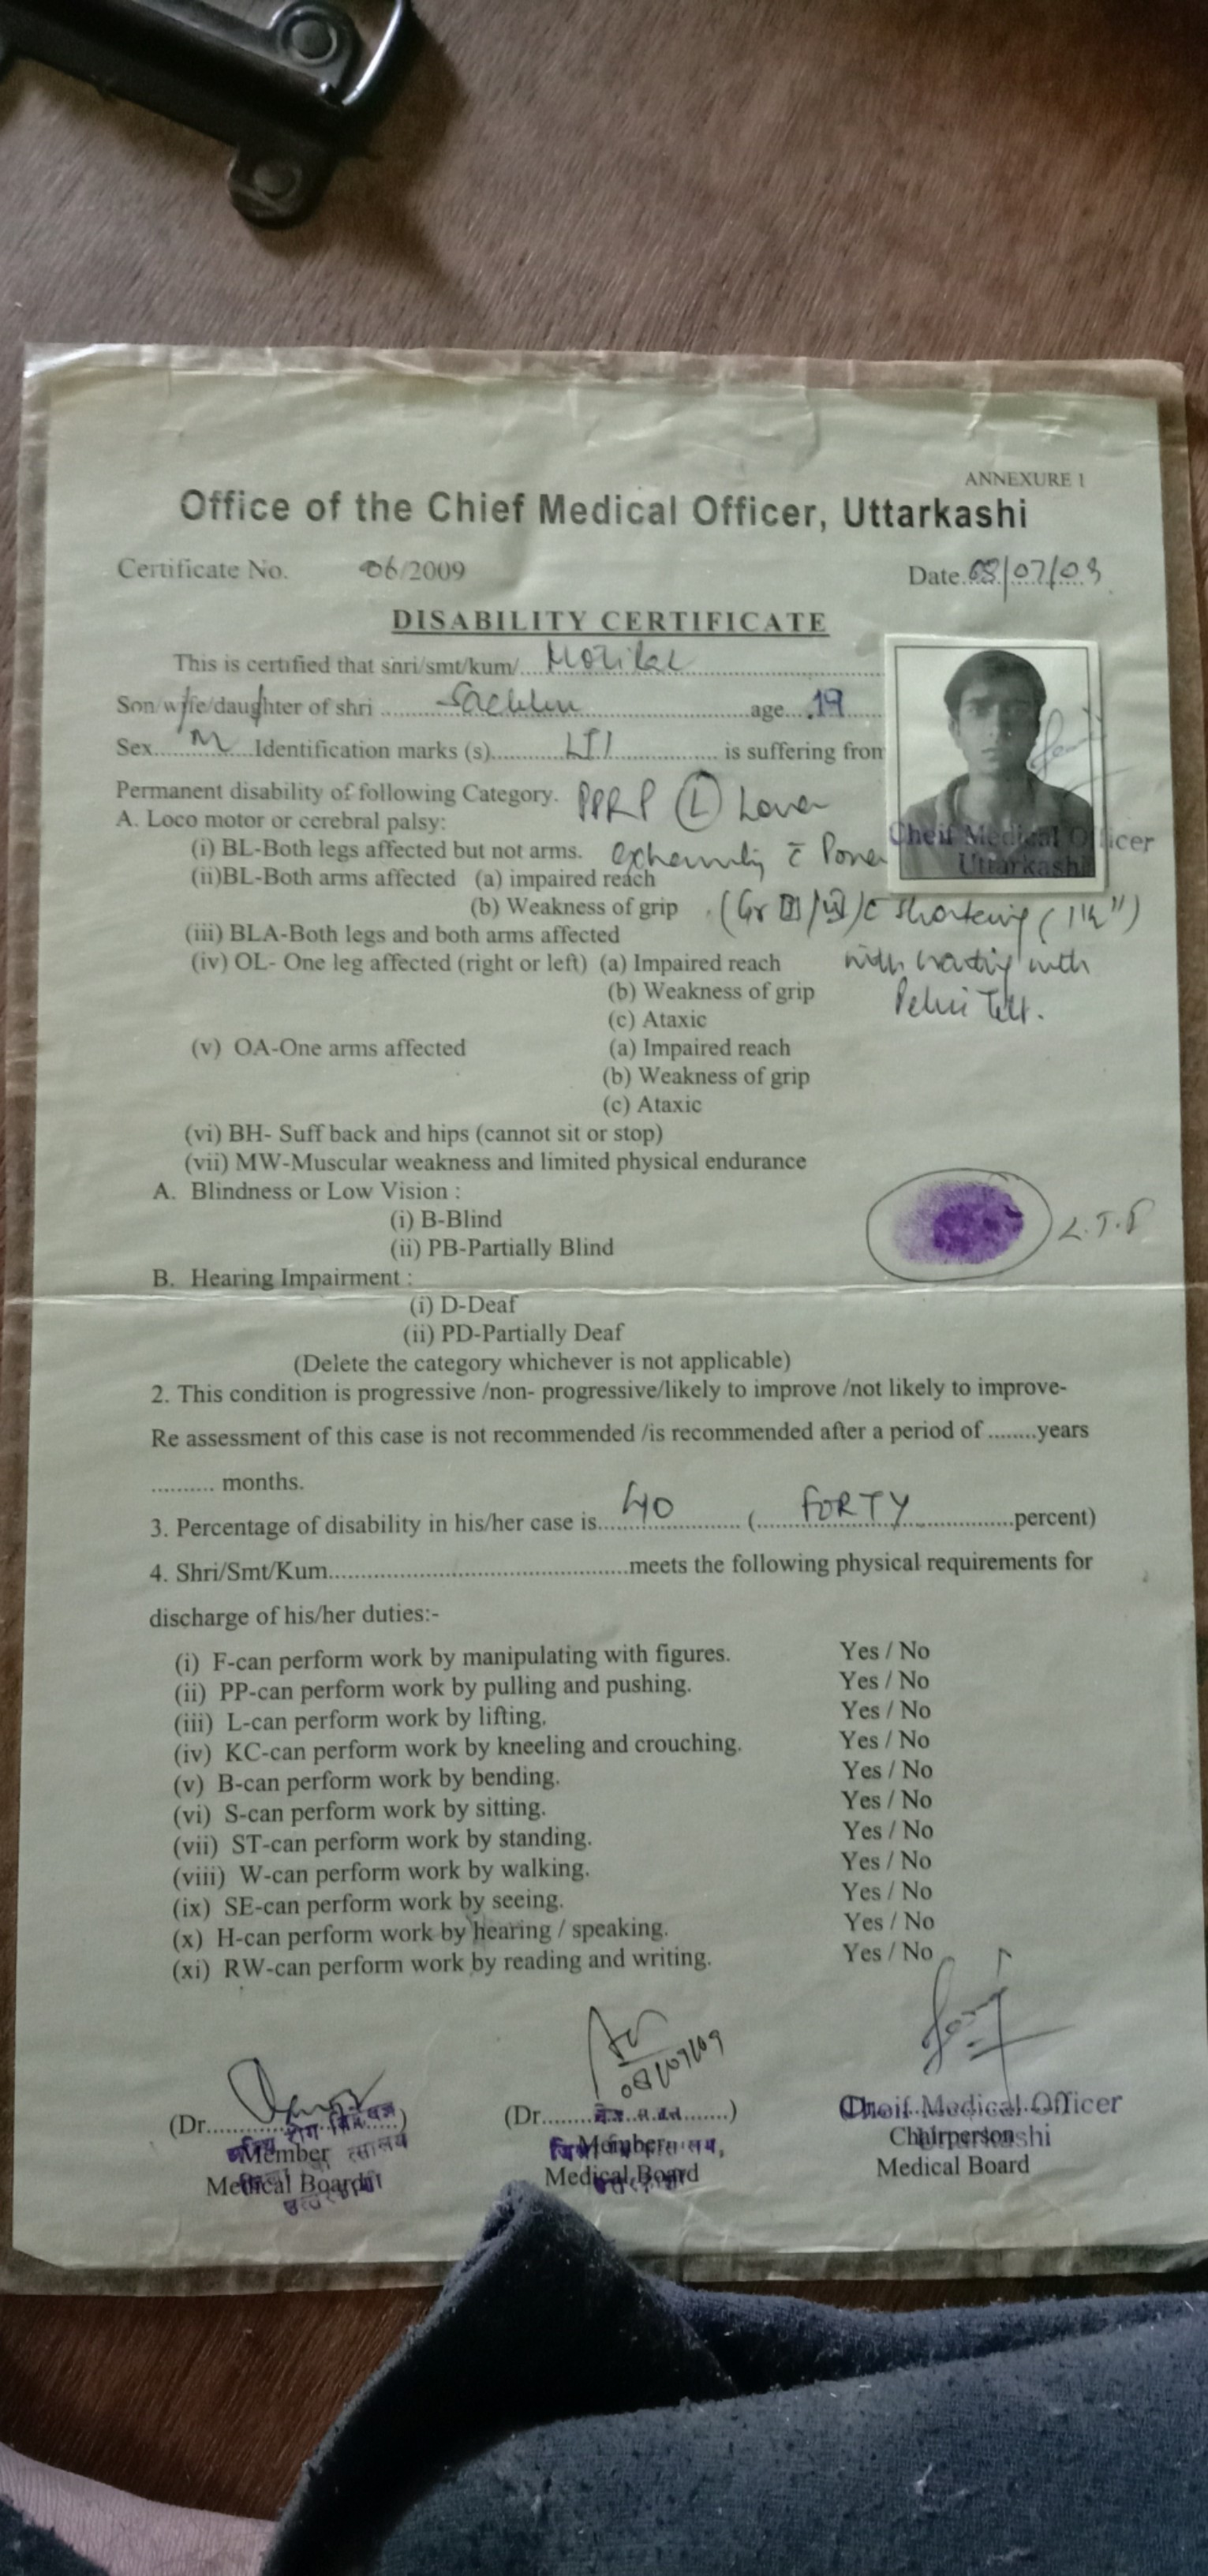 ANNEXURE 1
Office of the Chief Medical Officer, Uttarkashi
Certificate No. 06/2009 Date 08/07/09
DISABILITY CERTIFICATE
This is certified that snri/smt/kum/... Motilal
Son/wife/daughter of shri ........ age.... 19
Sex.... M ....Identification marks (s)...... LTI ...... is suffering from
Permanent disability of following Category. PPRP (L) Lower
A. Loco motor or cerebral palsy:
(i) BL-Both legs affected but not arms. extremity c̄ Power
(ii)BL-Both arms affected (a) impaired reach
(b) Weakness of grip (Gr III/IV) c̄ shortening (1½")
(iii) BLA-Both legs and both arms affected
(iv) OL- One leg affected (right or left) (a) Impaired reach with wasting with
(b) Weakness of grip Pelvic Tilt.
(c) Ataxic
(v) OA-One arms affected (a) Impaired reach
(b) Weakness of grip
(c) Ataxic
(vi) BH- Suff back and hips (cannot sit or stop)
(vii) MW-Muscular weakness and limited physical endurance
A. Blindness or Low Vision :
(i) B-Blind
(ii) PB-Partially Blind
L.T.P
B. Hearing Impairment :
(i) D-Deaf
(ii) PD-Partially Deaf
(Delete the category whichever is not applicable)
2. This condition is progressive /non- progressive/likely to improve /not likely to improve-
Re assessment of this case is not recommended /is recommended after a period of ........years
.......... months.
3. Percentage of disability in his/her case is.... 40 .... (.... FORTY ....percent)
4. Shri/Smt/Kum..........................................meets the following physical requirements for
discharge of his/her duties:-
(i) F-can perform work by manipulating with figures. Yes / No
(ii) PP-can perform work by pulling and pushing. Yes / No
(iii) L-can perform work by lifting. Yes / No
(iv) KC-can perform work by kneeling and crouching. Yes / No
(v) B-can perform work by bending. Yes / No
(vi) S-can perform work by sitting. Yes / No
(vii) ST-can perform work by standing. Yes / No
(viii) W-can perform work by walking. Yes / No
(ix) SE-can perform work by seeing. Yes / No
(x) H-can perform work by hearing / speaking. Yes / No
(xi) RW-can perform work by reading and writing. Yes / No
08/07/09
(Dr..................) (Dr..................) Cheif Medical Officer
Member Member Chairperson
Medical Board Medical Board Medical Board
Cheif Medical Officer
Uttarkashi